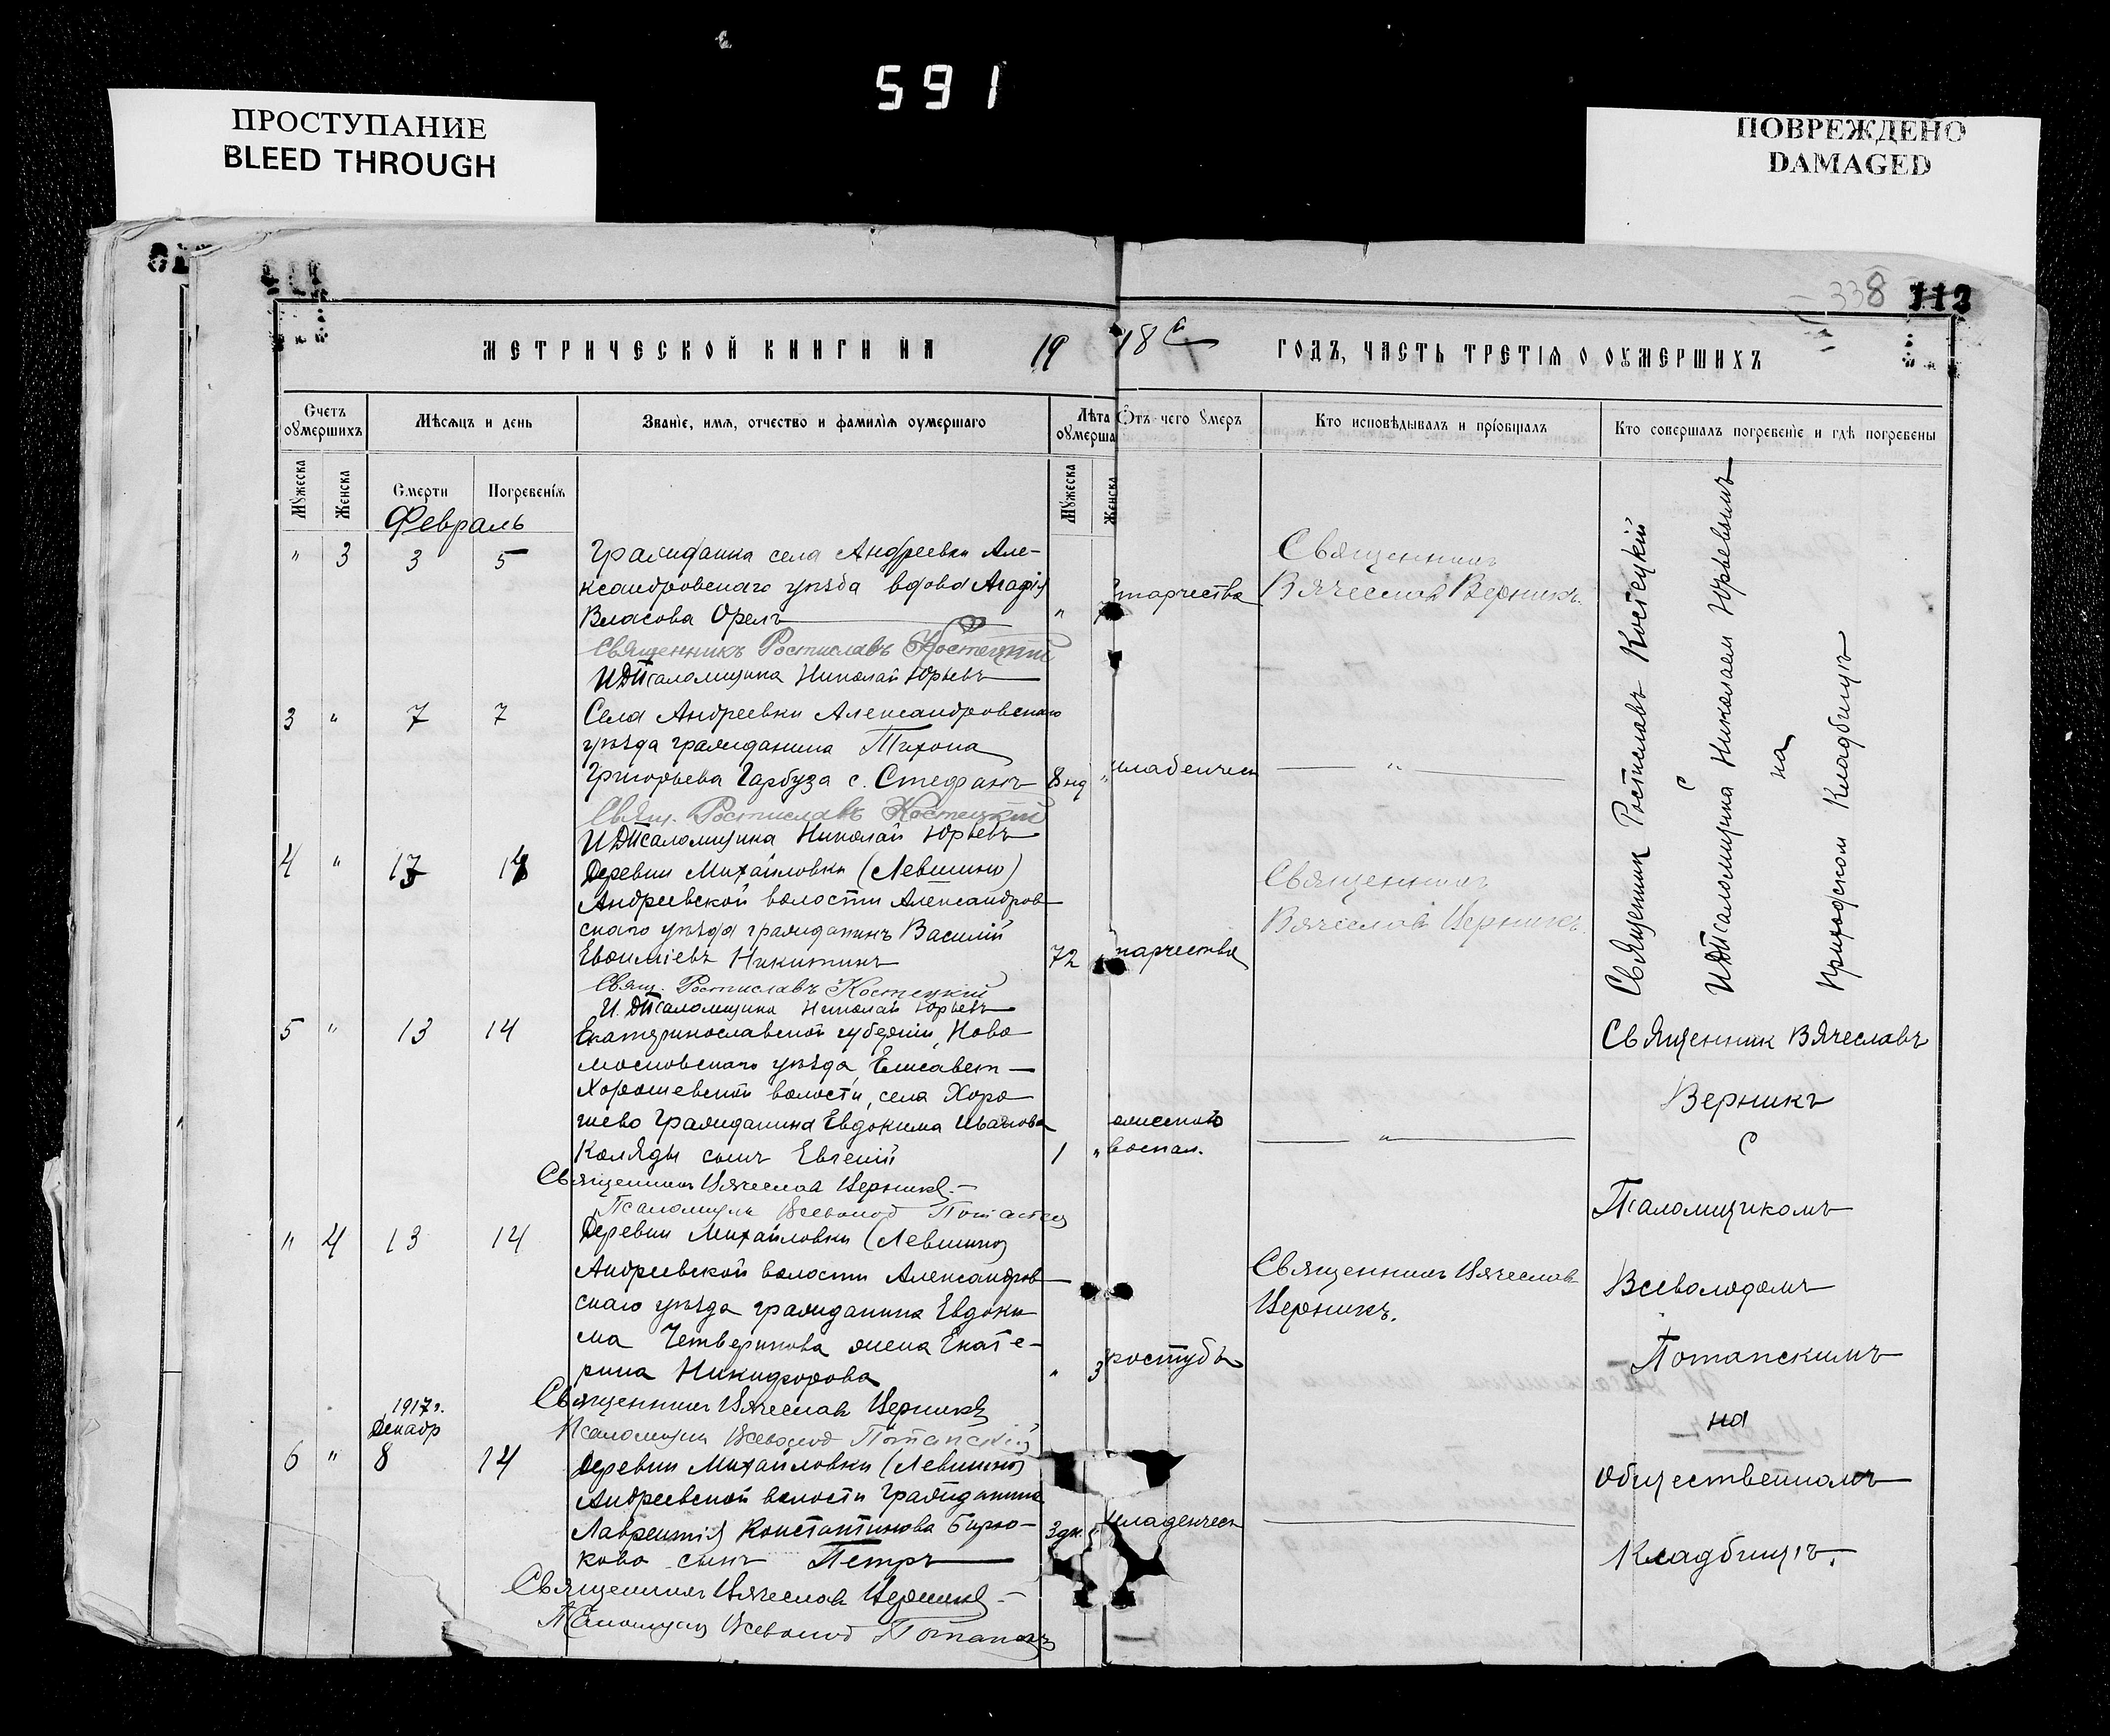 591
ПРОСТУПАНИЕ
BLEED THROUGH
ПОВРЕЖДЕНО
DAMAGED
338 113
МЕТРИЧЕСКОЙ КНИГИ НА 1918 ГОДЪ, ЧАСТЬ ТРЕТІЯ О ОУМЕРШИХЪ
Счетъ оумершихъ
Мѣсяцъ и день
Званіе, имя, отчество и фамилія оумершаго
Лѣта оумерша
Ѿтъ чего оумеръ
Кто исповѣдывалъ и пріобщалъ
Кто совершалъ погребеніе и гдѣ погребены
Мужеска
Женска
Смерти
Погребенія
Мужеска
Женска
Февраль
" 3 3 5 Гражданка села Андреевки Але-
ксандровскаго уѣзда вдова Агафія
Власова Орелъ "
тарчества
Священникъ
Вячеславъ Верникъ.
Священникъ Ростиславъ Костецкій
И.Д Псаломщика Николай Юрьевъ
3 " 7 7 Села Андреевки Александровскаго
уѣзда гражданина Тихона
Григорьева Гарбуза с. Стефанъ 8 нд " младенческ "
Свящ. Ростиславъ Костецкій
И.Д Псаломщика Николай Юрьевъ
4 " 13 14 Деревни Михайловки (Левшино)
Андреевской волости Александров
скаго уѣзда гражданинъ Василій
Евѳиміевъ Никитинъ 72
тарчества
Священникъ
Вячеслав Верникъ.
Свящ. Ростиславъ Костецкій
И.Д Псаломщика Николай Юрьевъ
Священник Ростиславъ Костецкій
с
И.Д Псаломщика Николаем Юрьевымъ
на
Приходском Кладбищѣ
5 " 13 14 Екатеринославской губерніи, Ново
московскаго уѣзда, Елисавет —
Хорошевской волости, села Хоро
шево гражданина Евдокима Иванова
Коляды сынъ Евгеній 1 "
воспал. "
Священникъ Вячеславъ Верникъ.
Псаломщикъ Всеволод Потапскій
" 4 13 14 Деревни Михайловки (Левшино)
Андреевской волости Александров
скаго уѣзда гражданина Евдоки
ма Четверикова жена Екате-
рина Никифорова " 3
Священникъ Вячеслав
Верникъ.
Священникъ Вячеслав Верникъ
Псаломщик Всеволод Потапскій
1917 г.
Декабр
6 " 8 14 Деревни Михайловки (Левшино)
Андреевской волости гражданина
Лаврентія Константинова Бирю-
кова сынъ Петръ 3 дн. младенческ
Священникъ Вячеслав Верникъ
Псаломщик Всеволод Потапскій
Священник Вячеславъ
Верникъ
с
Псаломщикомъ
Всеволодомъ
Потапскимъ
на
общественномъ
Кладбищѣ.